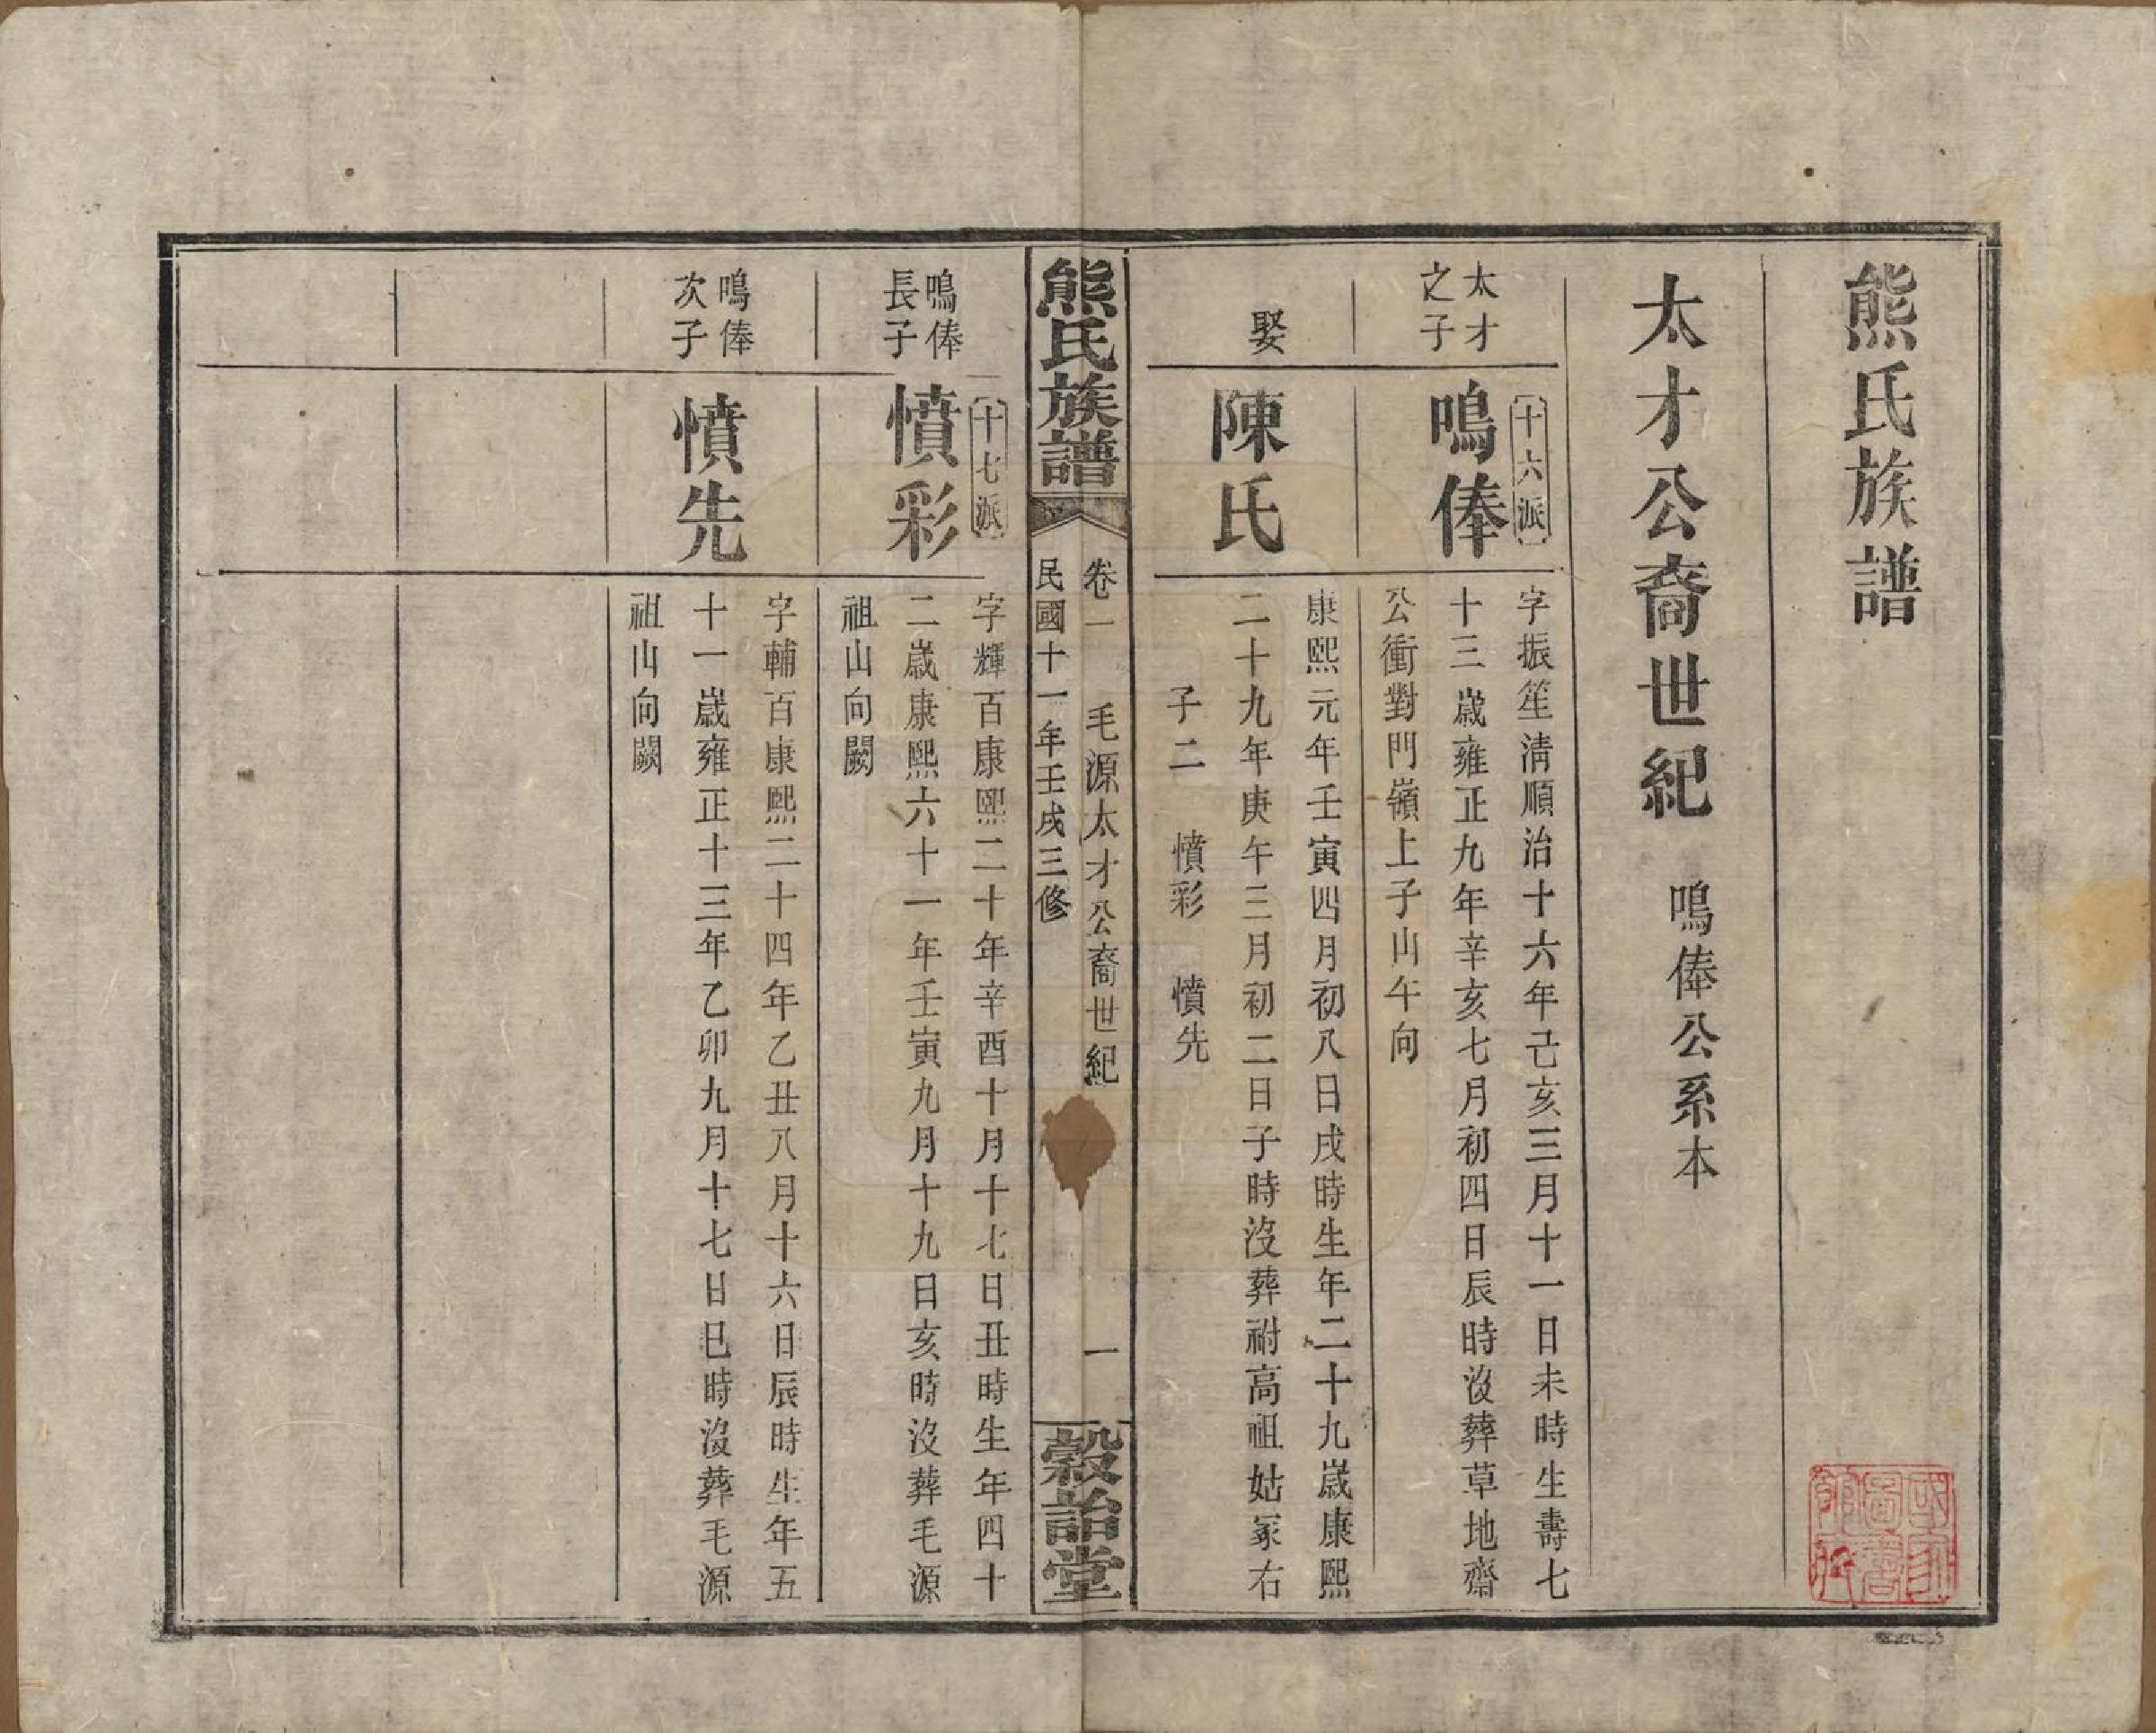 熊氏族譜
太才公裔世紀 鳴俸公系本
太才
之子
十六派
鳴俸
字振笙清順治十六年己亥三月十一日未時生壽七
十三歲雍正九年辛亥七月初四日辰時沒葬草地齋
公衝對門嶺上子山午向
娶
陳氏
康熙元年壬寅四月初八日戌時生年二十九歲康熙
二十九年庚午三月初二日子時沒葬祔高祖姑冢右
子二 憤彩 憤先
熊氏族譜
卷一 毛源太才公裔世紀 一
民國十一年壬戌三修
穀詒堂
鳴俸
長子
十七派
憤彩
字輝百康熙二十年辛酉十月十七日丑時生年四十
二歲康熙六十一年壬寅九月十九日亥時沒葬毛源
祖山向闕
鳴俸
次子
憤先
字輔百康熙二十四年乙丑八月十六日辰時生年五
十一歲雍正十三年乙卯九月十七日巳時沒葬毛源
祖山向闕